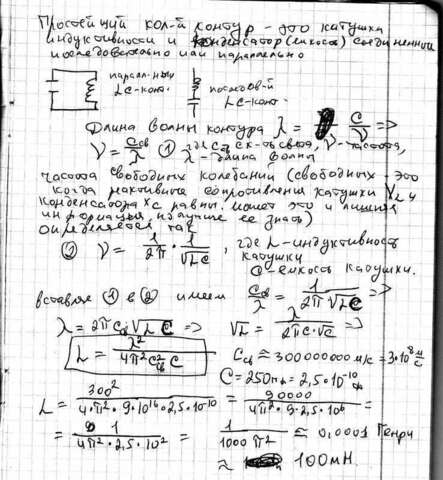 Простейший кол-й контур - это катушки
индуктивности и конденсатор (емкость) соединенной
последовательно или параллельно
паралл-ный
LC-конт.
последов-й
LC-конт.
Длина волны контура λ = c/ν =>
ν = Cсв/λ ① где Cсв ск-ть света, ν-частота,
λ - длина волны
частота свободных колебаний (свободных - это
когда реактивные сопротивления катушки XL и
конденсатора Xc равны. Может это и лишняя
информация, но лучше ее знать)
определяется так
② ν = 1/2π · 1/√LC, где L-индуктивность
катушки
C-емкость катушки.
вставляе ① в ② имеем Cсв/λ = 1/2π√LC =>
λ = 2πCсв√LC => √L = λ/2πC·√C =>
L = λ²/4π²C²свC Cсв ≈ 300000000 м/с = 3·10⁸ м/с
C = 250пф = 2,5·10⁻¹⁰ф
L = 300²/4·π²·9·10¹⁶·2,5·10⁻¹⁰ = 90000/4π²·9·2,5·10⁶ =
= 1/4π²·2,5·10² = 1/1000π² ≈ 0,0001 Генри
≈ 100мН.